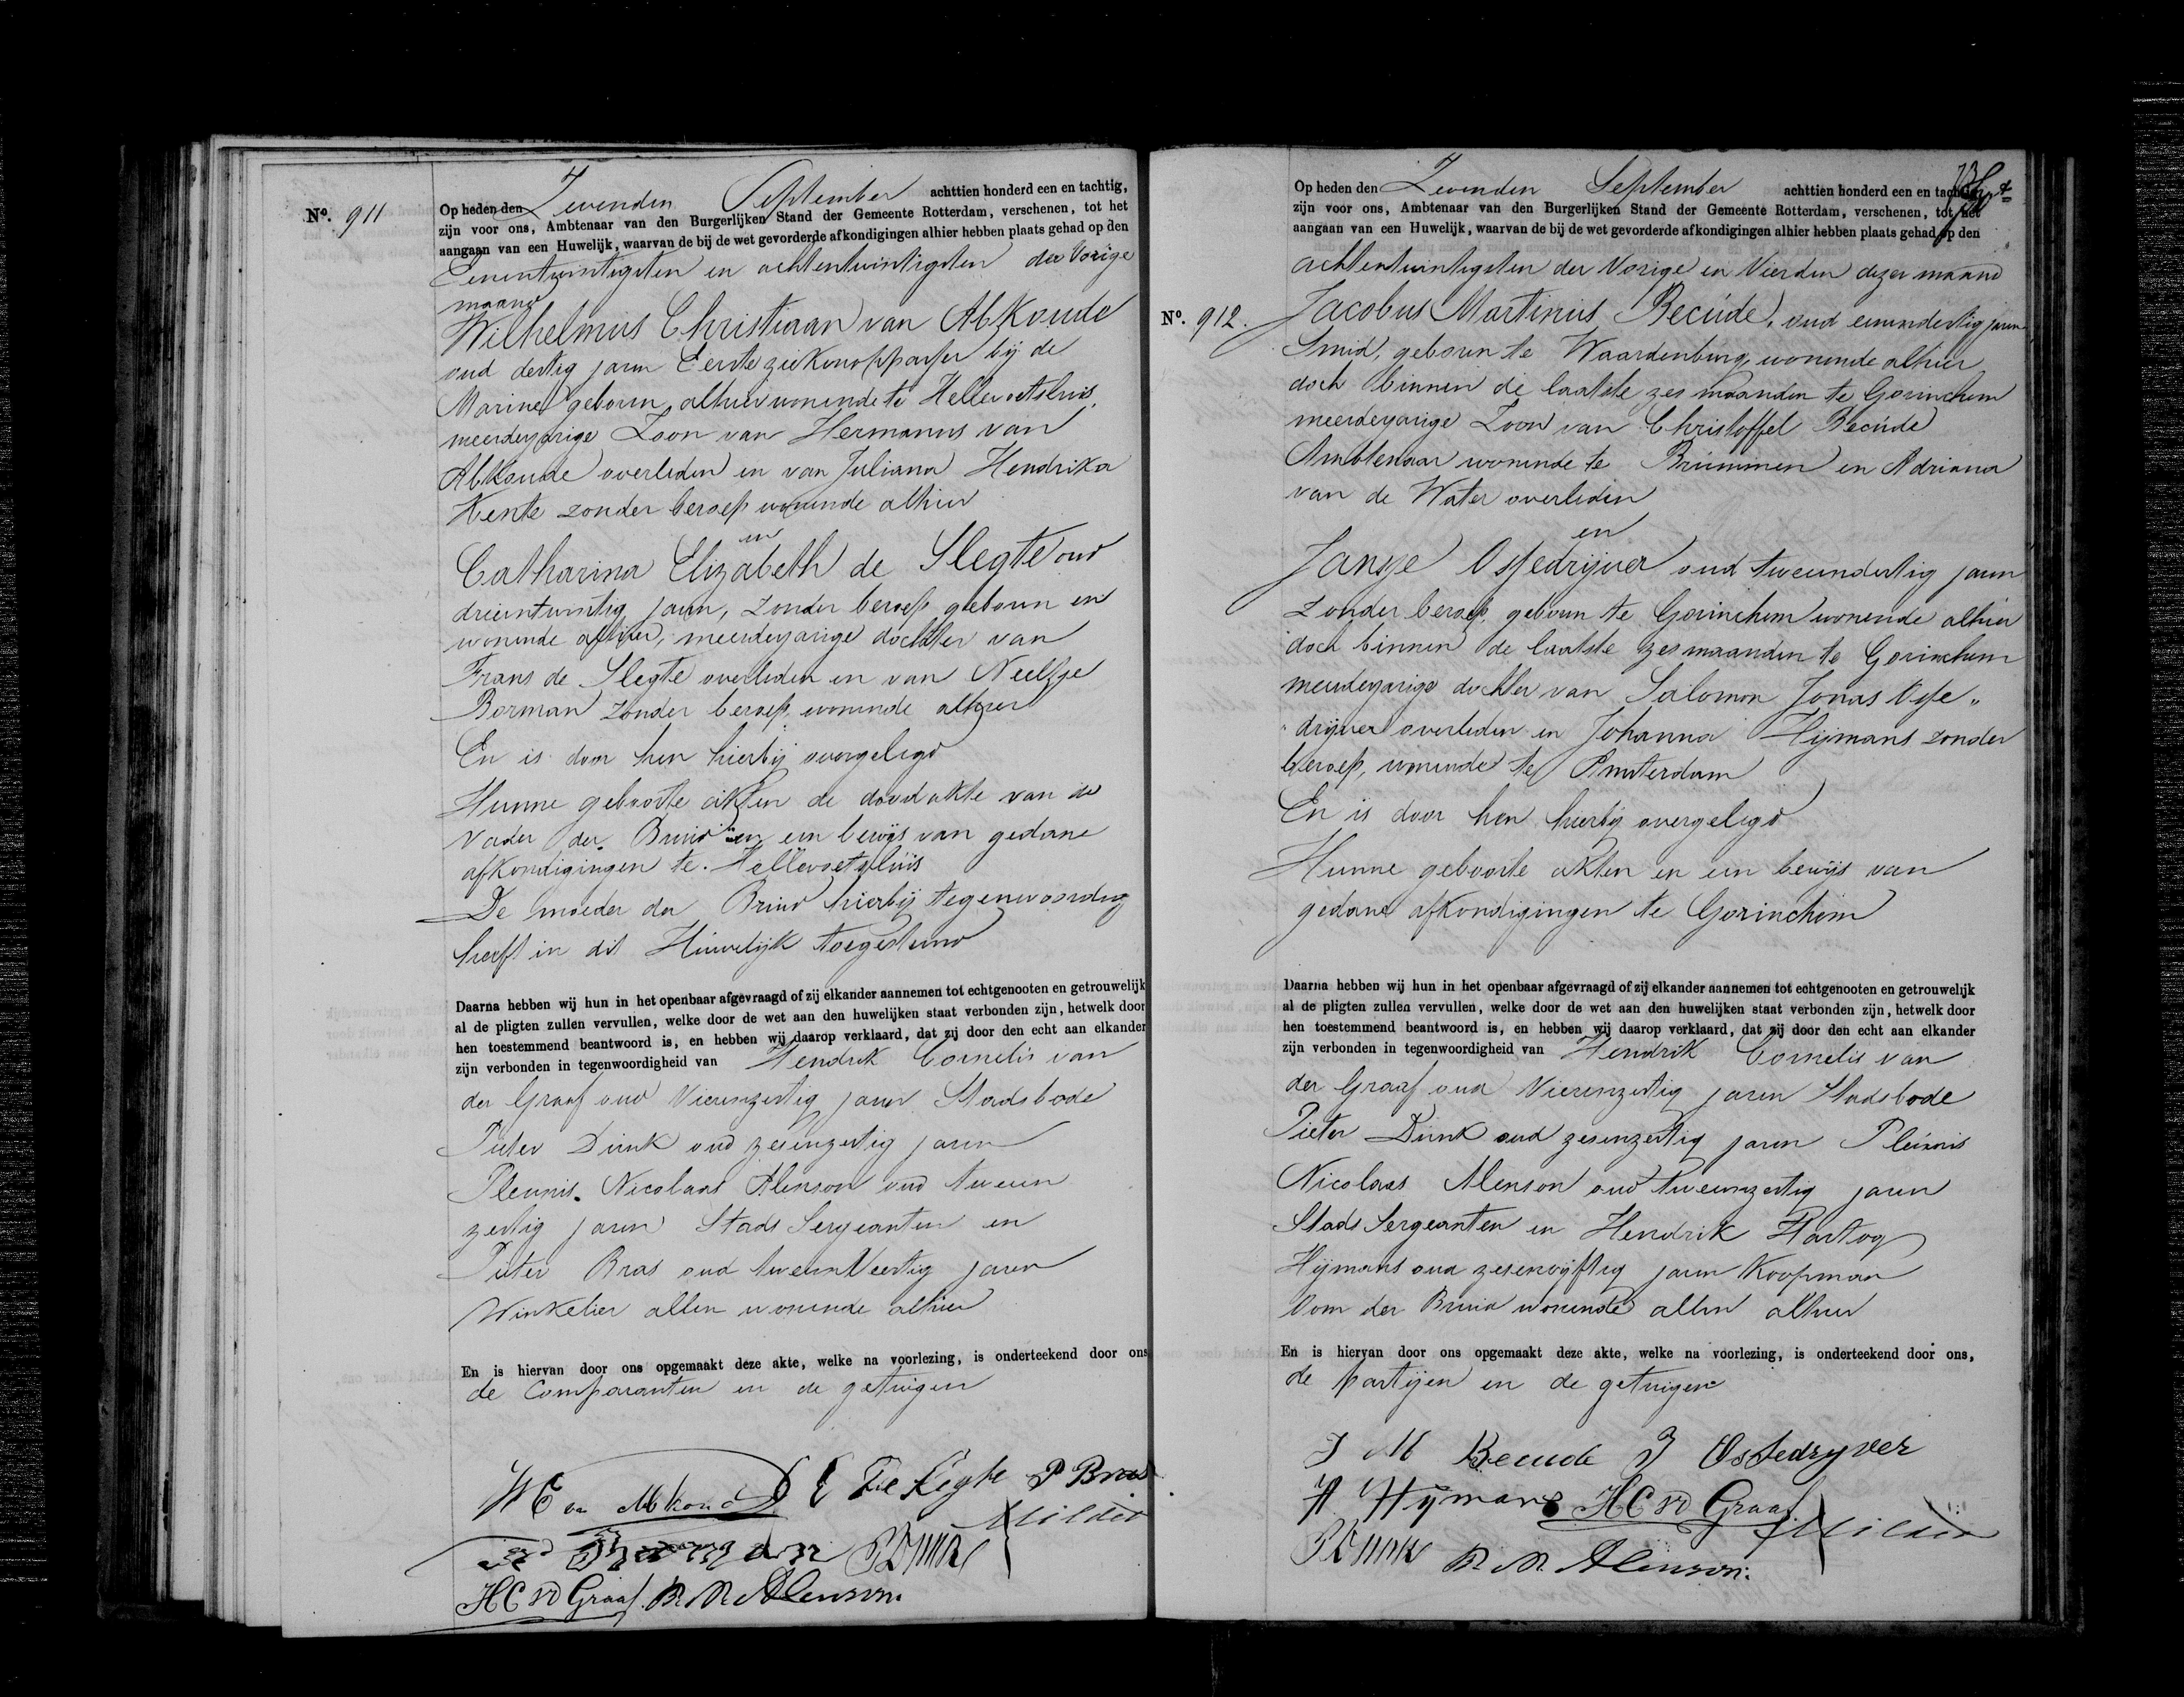 Nº. 911
Op heden den Zevenden September achttien honderd een en tachtig,
zijn voor ons, Ambtenaar van den Burgerlijken Stand der Gemeente Rotterdam, verschenen, tot het
aangaan van een Huwelijk, waarvan de bij de wet gevorderde afkondigingen alhier hebben plaats gehad op den
Eenentwintigsten en achtentwintigsten der Vorige
maand
Wilhelmus Christiaan van Abkoude
oud dertig jaren Eerste ziekenoppasser bij de
Marine geboren alhier wonende te Hellevoetsluis,
meerderjarige Zoon van Hermanus van
Abkoude overleden en van Juliana Hendrika
Kente zonder beroep wonende alhier
en
Catharina Elizabeth de Slegte oud
drieentwintig jaren, zonder beroep geboren en
wonende alhier, meerderjarige dochter van
Frans de Slegte overleden en van Neeltje
Borman zonder beroep, wonende alhier
En is door hen hierbij overgelegd
Hunne geboorte akten de doodakte van de
Vader der Bruid en een bewijs van gedane
afkondigingen te Hellevoetsluis
De moeder der Bruid hierbij tegenwoordig
heeft in dit Huwelijk toegestemd
Daarna hebben wij hun in het openbaar afgevraagd of zij elkander aannemen tot echtgenooten en getrouwelijk
al de pligten zullen vervullen, welke door de wet aan den huwelijken staat verbonden zijn, hetwelk door
hen toestemmend beantwoord is, en hebben wij daarop verklaard, dat zij door den echt aan elkander
zijn verbonden in tegenwoordigheid van Hendrik Cornelis van
der Graaf oud Vierenzestig jaren Stadsbode
Pieter Dunk oud zesenzestig jaren
Pleunis Nicolaas Alenson oud tweeen
zestig jaren Stads Sergeanten en
Pieter Bras oud tweeenVeertig jaren
Winkelier allen wonende alhier
En is hiervan door ons opgemaakt deze akte, welke na voorlezing, is onderteekend door ons
de Comparanten en de getuigen
W C van Abkoude C E de Slegte P Bras
HC vd Graaf P. N. Alenson
Op heden den Zevenden September achttien honderd een en tachtig,
zijn voor ons, Ambtenaar van den Burgerlijken Stand der Gemeente Rotterdam, verschenen, tot het
aangaan van een Huwelijk, waarvan de bij de wet gevorderde afkondigingen alhier hebben plaats gehad op den
achtentwintigsten der Vorige en Vierden dezer maand
Nº. 912.
Jacobus Martinus Becude, oud eenendertig jaren
Smid, geboren te Waardenburg, wonende alhier
doch binnen de laatste zes maanden te Gorinchem
meerderjarige Zoon van Christoffel Becude
Ambtenaar wonende te Brummen en Adriana
van de Water overleden
en
Jansje Ossedrijver oud tweeendertig jaren
zonder beroep, geboren te Gorinchem wonende alhier
doch binnen de laatste zes maanden te Gorinchem
meerderjarige dochter van Salomon Jonas Osse„
„drijver overleden en Johanna Hijmans zonder
beroep, wonende te Amsterdam
En is door hen hierbij overgelegd
Hunne geboorte akten en een bewijs van
gedane afkondigingen te Gorinchem
Daarna hebben wij hun in het openbaar afgevraagd of zij elkander aannemen tot echtgenooten en getrouwelijk
al de pligten zullen vervullen, welke door de wet aan den huwelijken staat verbonden zijn, hetwelk door
hen toestemmend beantwoord is, en hebben wij daarop verklaard, dat zij door den echt aan elkander
zijn verbonden in tegenwoordigheid van Hendrik Cornelis van
der Graaf oud Vierenzestig jaren Stadsbode
Pieter Dunk oud zesenzestig jaren Pleunis
Nicolaas Alenson oud tweeenzestig jaren
Stads Sergeanten en Hendrik Hartog
Hijmans oud zesenvijftig jaren Koopman
Oom der Bruid wonende allen alhier
En is hiervan door ons opgemaakt deze akte, welke na voorlezing, is onderteekend door ons,
de partijen en de getuigen
J M Becude J Ossedryver
H Hijmans HC vd Graaf
P Dunk P. N. Alenson.